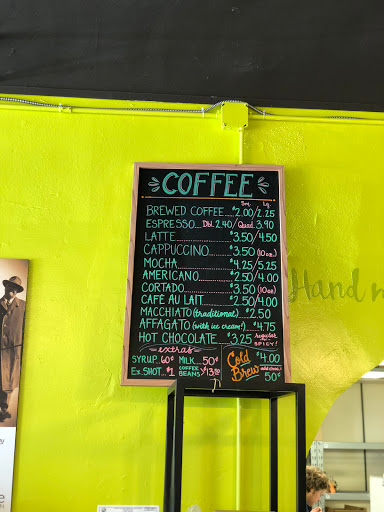 COFFEE
Sm. Lg.
BREWED COFFEE....$2.00/2.25
ESPRESSO...Dbl. 2.40/Quad. 3.90
LATTE $3.50/4.50
CAPPUCCINO $3.50 (10oz.)
MOCHA $4.25/5.25
AMERICANO $2.50/4.00
CORTADO $3.50 (10oz)
CAFÉ AU LAIT $2.50/4.00
MACCHIATO (traditional).$2.50
AFFAGATO (with ice cream!) $4.75
HOT CHOCOLATE..$3.25 regular or SPICY!
extras
SYRUP. 60¢ MILK. 50¢
EX. SHOT. $1 COFFEE BEANS $13.00
Cold Brew $4.00
50¢
Hand